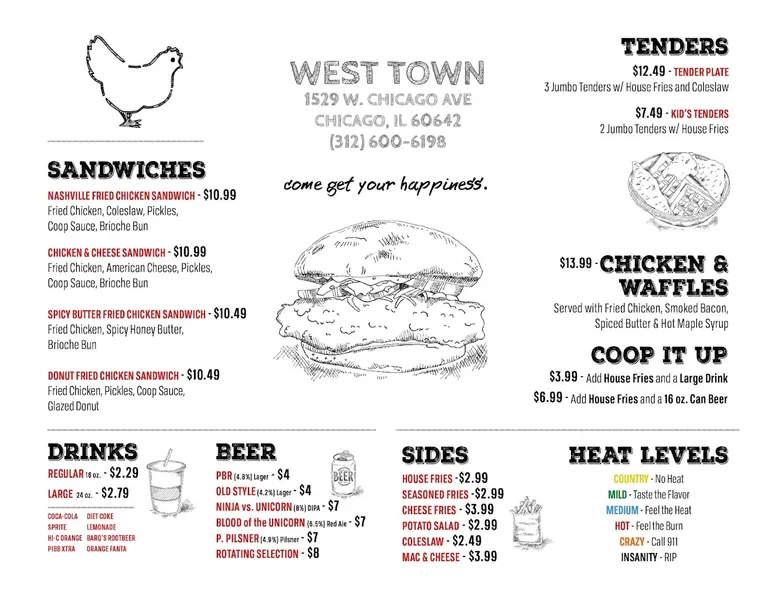 WEST TOWN
1529 W. CHICAGO AVE
CHICAGO, IL 60642
(312) 600-6198
come get your happiness.
SANDWICHES
NASHVILLE FRIED CHICKEN SANDWICH - $10.99
Fried Chicken, Coleslaw, Pickles,
Coop Sauce, Brioche Bun
CHICKEN & CHEESE SANDWICH - $10.99
Fried Chicken, American Cheese, Pickles,
Coop Sauce, Brioche Bun
SPICY BUTTER FRIED CHICKEN SANDWICH - $10.49
Fried Chicken, Spicy Honey Butter,
Brioche Bun
DONUT FRIED CHICKEN SANDWICH - $10.49
Fried Chicken, Pickles, Coop Sauce,
Glazed Donut
TENDERS
$12.49 - TENDER PLATE
3 Jumbo Tenders w/ House Fries and Coleslaw
$7.49 - KID'S TENDERS
2 Jumbo Tenders w/ House Fries
$13.99 - CHICKEN &
WAFFLES
Served with Fried Chicken, Smoked Bacon,
Spiced Butter & Hot Maple Syrup
COOP IT UP
$3.99 - Add House Fries and a Large Drink
$6.99 - Add House Fries and a 16 oz. Can Beer
DRINKS
REGULAR 16 oz. - $2.29
LARGE 24 oz. - $2.79
COCA-COLA DIET COKE
SPRITE LEMONADE
HI-C ORANGE BARQ'S ROOTBEER
PIBB XTRA ORANGE FANTA
BEER
PBR (4.8%) Lager - $4
OLD STYLE (4.2%) Lager - $4
NINJA vs. UNICORN (8%) DIPA - $7
BLOOD of the UNICORN (6.5%) Red Ale - $7
P. PILSNER (4.9%) Pilsner - $7
ROTATING SELECTION - $8
BEER
SIDES
HOUSE FRIES -$2.99
SEASONED FRIES -$2.99
CHEESE FRIES - $3.99
POTATO SALAD - $2.99
COLESLAW - $2.49
MAC & CHEESE - $3.99
HEAT LEVELS
COUNTRY - No Heat
MILD - Taste the Flavor
MEDIUM - Feel the Heat
HOT - Feel the Burn
CRAZY - Call 911
INSANITY - RIP